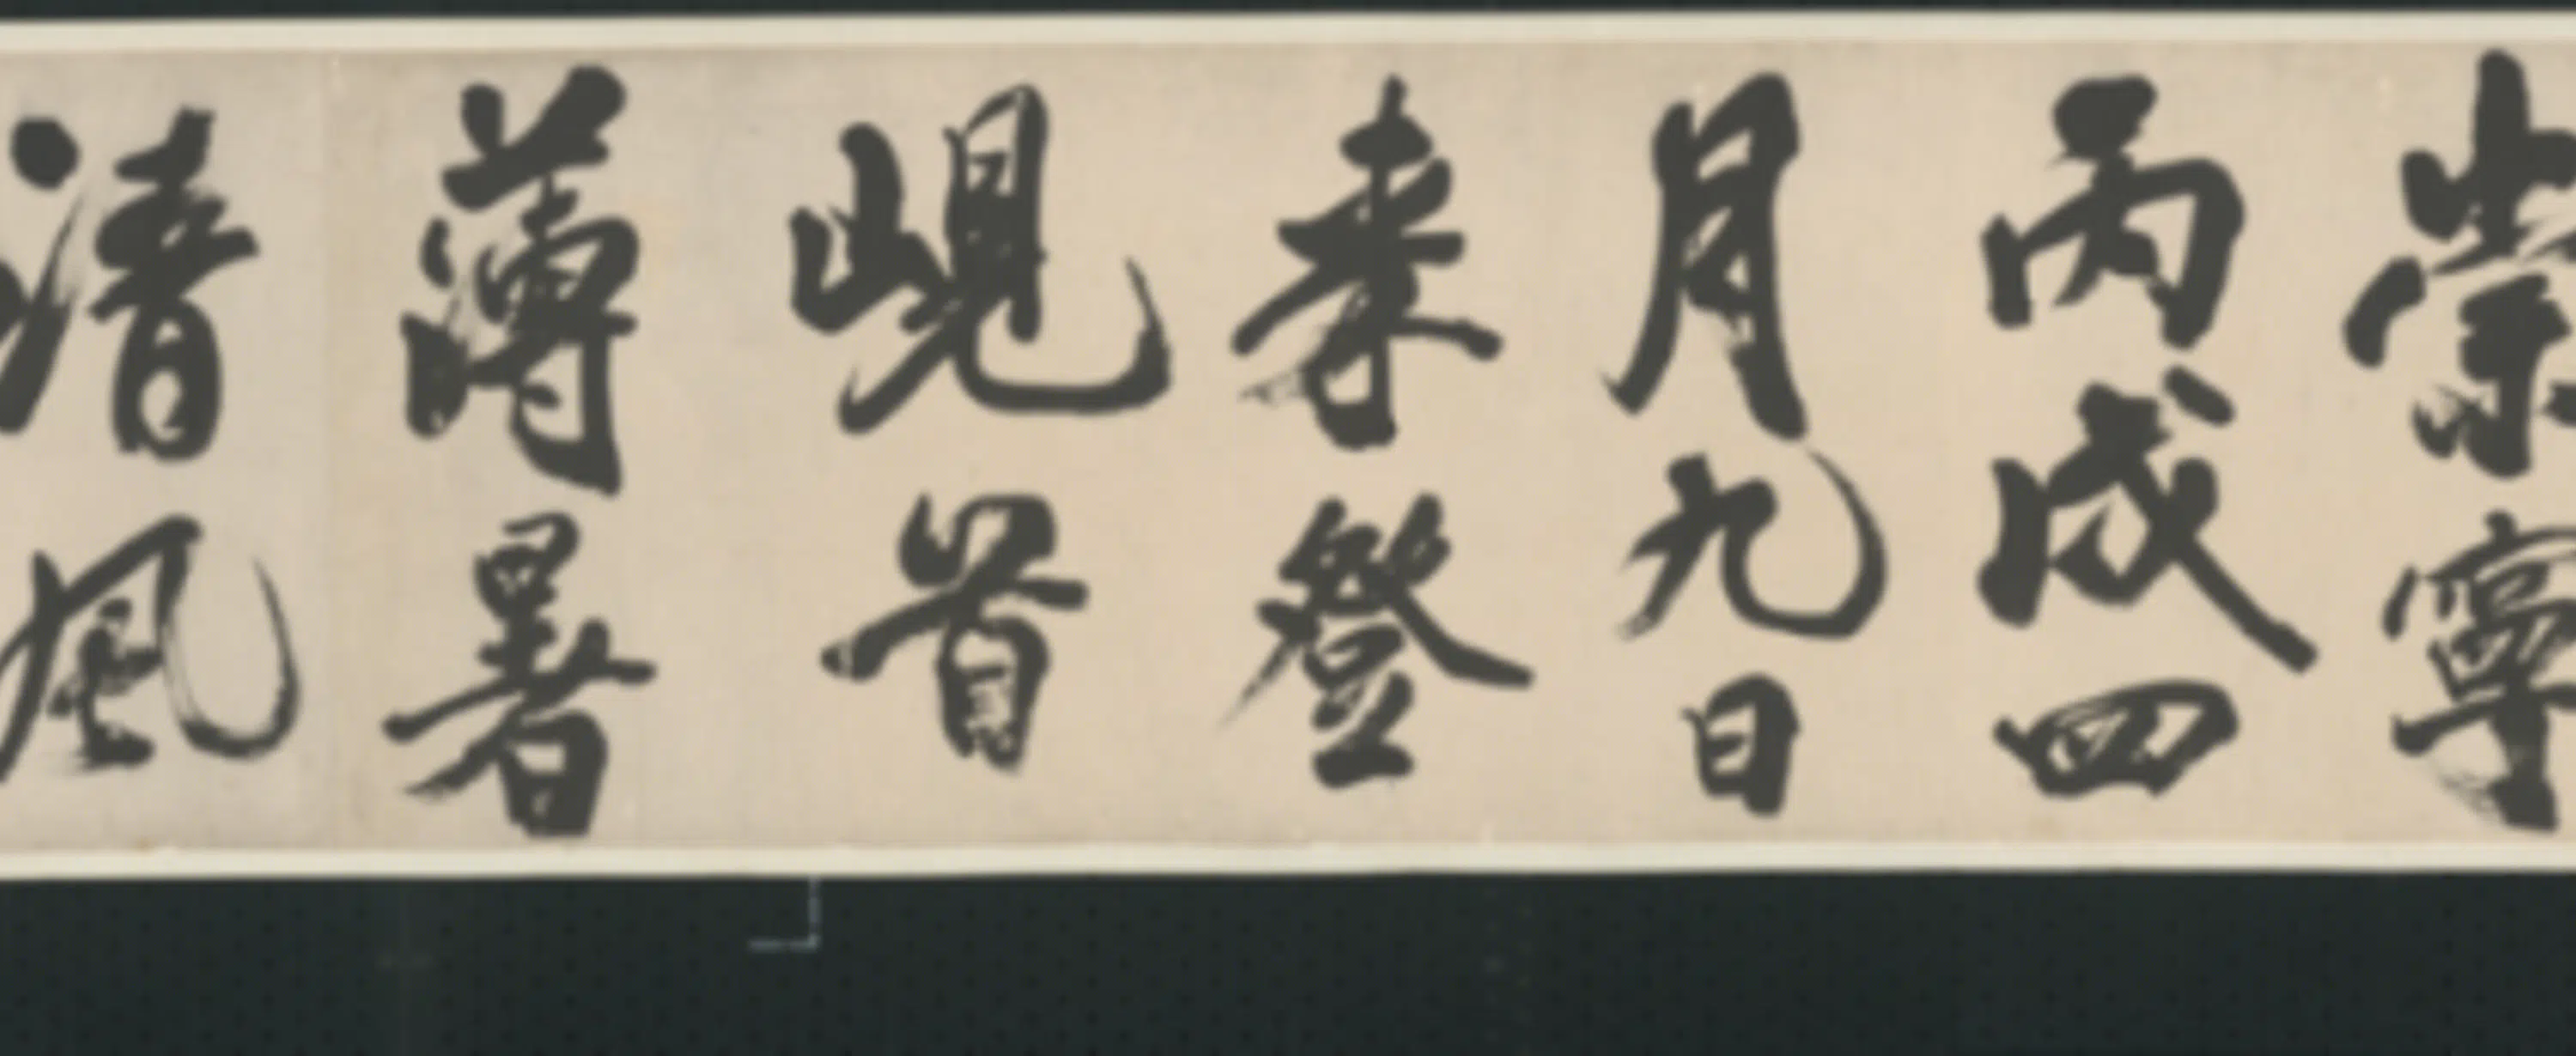 崇寧
丙戌四
月九日
来登
峴首
薄暑
清風